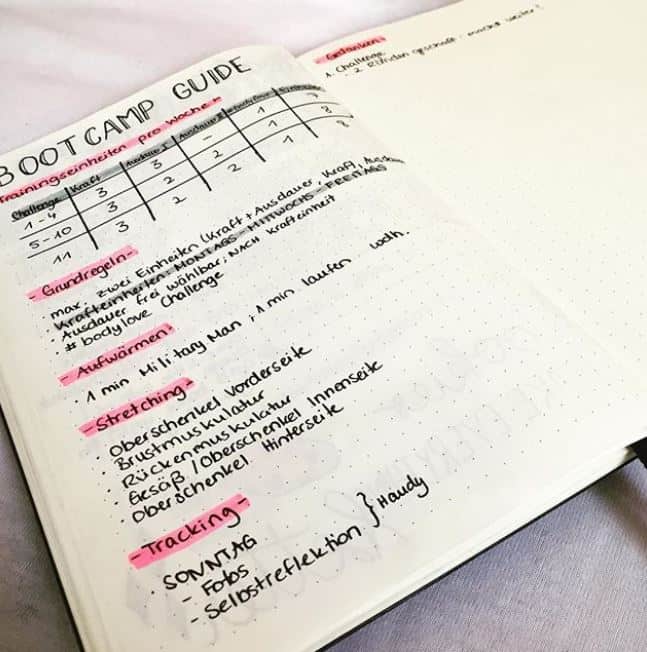 BOOTCAMP GUIDE
Trainingseinheiten pro Woche
Challenge Kraft Ausdauer I Ausdauer II
1-4 3 3 - 1 7
5-10 3 2 2 1 8
11 3 2 2 1 8
- Grundregeln -
· max. zwei Einheiten (Kraft + Ausdauer, Kraft,
· Krafteinheiten: MONTAGS - MITTWOCHS - FREITAGS
· Ausdauer frei wählbar, NACH Krafteinheit
· #bodylove Challenge
- Aufwärmen:
· 1 min Military Man, 1 min laufen wdh.
- Stretching -
· Oberschenkel Vorderseite
· Brustmuskulatur
· Rückenmuskulatur
· Gesäß / Oberschenkel Innenseite
· Oberschenkel Hinterseite
- Tracking -
· SONNTAG
- Fotos
- Selbstreflektion } Handy
- Gedanken -
1. Challenge
- 2 Runden geschafft. macht weiter!